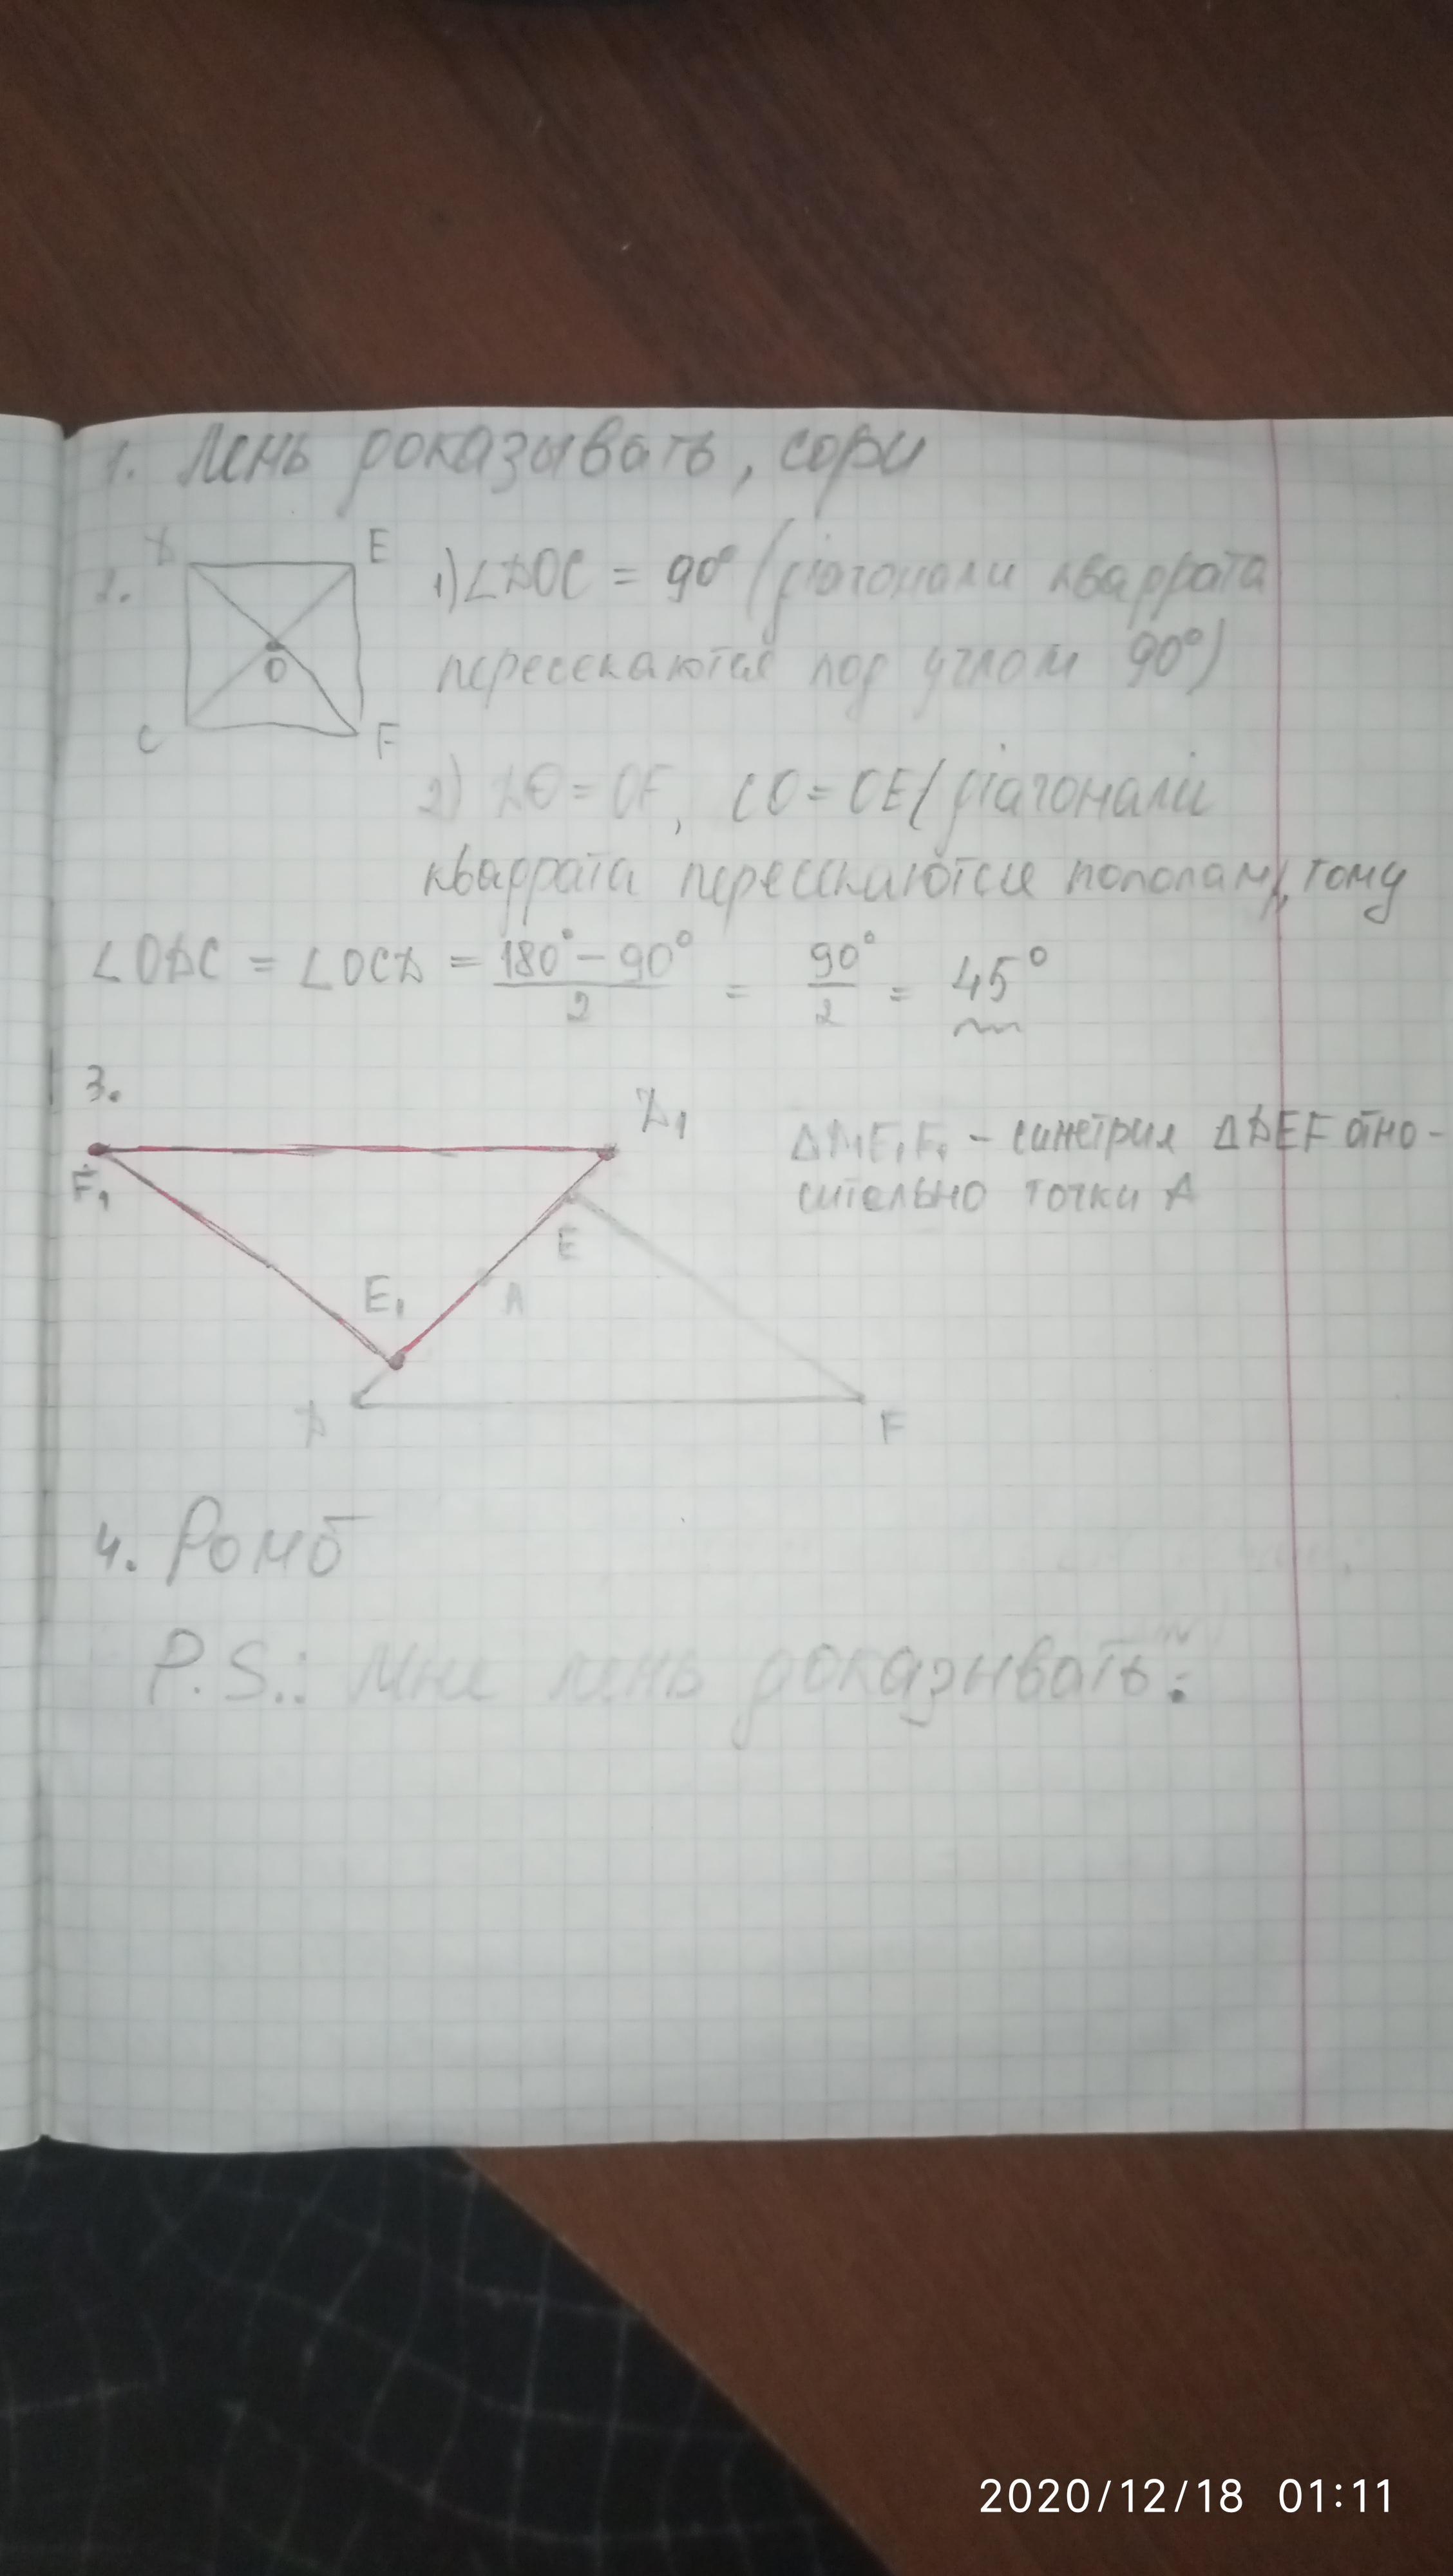 1. Лень доказывать, сори
D E
2.
O
C F
1) ∠DOC = 90° (діагонали квадрата
пересекаются под углом 90°)
2) DO = OF, CO = OE (діагонали
квадрата пересекаются пополам), тому
∠ODC = ∠OCD = (180° - 90°)/2 = 90°/2 = 45°
3.
D₁
F₁
E
E₁ A
D F
ΔD₁E₁F₁ - симетрия ΔDEF отно-
сительно точки А
4. Ромб
P.S.: Мне лень доказывать.
2020/12/18 01:11